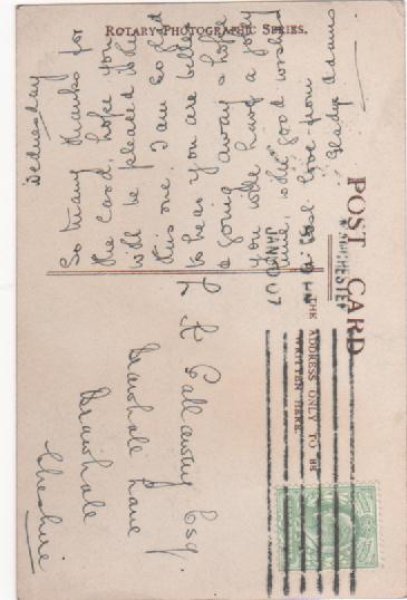 ROTARY PHOTOGRAPHIC SERIES.
POST CARD
THE ADDRESS ONLY TO BE
WRITTEN HERE.
Wednesday
So many thanks for
the card, hope you
will be pleased with
this one. I am so glad
to hear you are better
& going away & hope
you will have a jolly
time, with good wishes
& best love from
Gladys Adams
MANCHESTER
JAN 07
Galloway Esq.
Bramhall Lane
Bramhall
Cheshire